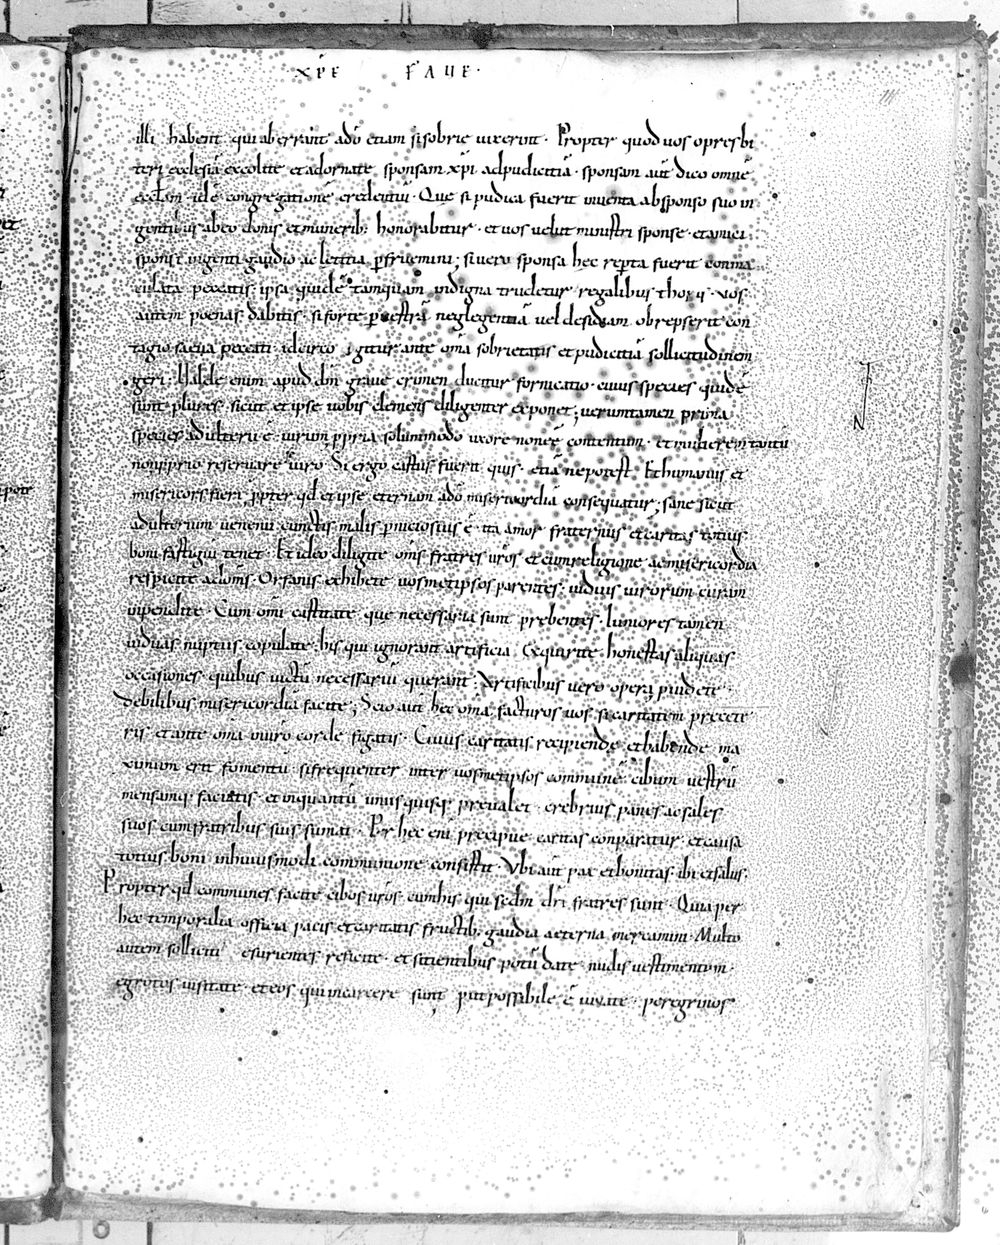 XPE FAUE·
illi habent qui aberrant a dõ etiam si sobrie uixerint · Propter quod uos o presbi
teri ecclesiã excolite et adornate sponsam xp̃i ad pudicitiã · sponsam aut̃ dico omnẽ
eccl̃am · id ẽ congregationẽ credentiũ · Que si pudica fuerit inuenta ab sponso suo in
gentib; ab eo donis et munerib; honorabitur · et uos uelut ministri sponse · et amici
sponsi ingenti gaudio ac letitia p̃fruemini; si uero sponsa hec rep̃ta fuerit conma
culata peccatis · ipsa quidẽ tamquam indigna trudetur regalibus thoris · uos
autem poenas dabitis · si forte p̃ uestrã neglegentiã uel desidiam obrepserit con
tagio saeua peccati · idcirco igitur ante om̃a sobrietatis et pudicitiã sollicitudinem
geri · Valde enim apud dm̃ graue crimen ducitur fornicatio · cuius species quidẽ
sunt plures · sicut et ipse uobis clemens diligenter exponet; uerumtamen prima
species adulterii ẽ · uirum p̃pria solummodo uxore non eẽ contentum · et mulierem tantũ
non p̃prio reseruare uiro · Si ergo castus fuerit quis · etiã ne potest · Et humanus et
misericors fieri · p̃pter qd̃ et ipse eternam a dõ misericordiã consequatur; sane sicut
adulterium uenenũ cunctis malis p̃niciosius ẽ · ita amor fraternus et caritas totius
boni fastigiũ tenet · Et ideo diligite om̃s fratres uros et cum religione ac misericordia
respicite ad om̃s · Orfanis exhibete uosmetipsos parentes · uiduis uirorum curam
inpendite · Cum om̃i castitate que necessaria sunt prebentes · Iuniores tamen
uiduas nuptiis copulate · his qui ignorant artificia · Exquirite honestas aliquas
occasiones quibus uictũ necessariũ querant · Artificibus uero opera puidete ·
debilibus misericordiã facite; Scio aut̃ hec om̃a facturos uos · si caritatem p̃ cete
ris et ante om̃a in uiro corde figatis · Cuius caritatis recipiende et habende ma
ximum erit fomentũ · si frequenter inter uosmetipsos communẽ cibum uestrũ
mensamq; faciatis · et in quantũ unusquisq; preualet crebrius panes ac sales
suos cum fratribus suis sumat · Per hec eni p̃cipue caritas conparatur · et causa
totius boni in huiusmodi communione consistit · Vbi aut̃ pax et bonitas · ibi et salus ·
Propter qd̃ communes facite cibos uros · cum his qui sedm dm̃ fratres sunt · Quia per
hec temporalia officia pacis et caritatis fructib; gaudia aeterna mercamini · Multo
autem solliciti esurientes reficite · et sitientibus potũ date · nudis uestimentum ·
egrotos uisitate · et eos qui in carcere sunt p̃ut possibile ẽ iuuate · peregrinos